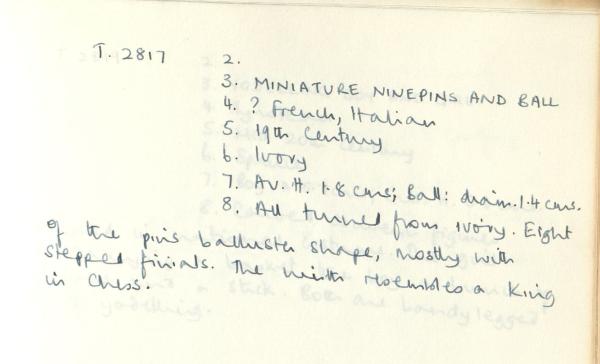 T. 2817 2.
3. MINIATURE NINEPINS AND BALL
4. ? French, Italian
5. 19th Century
6. Ivory
7. Av. H. 1.8 cms; Ball: diam. 1.4 cms.
8. All turned from ivory. Eight
of the pins balluster shape, mostly with
stepped finials. The ninth resembles a King
in Chess.